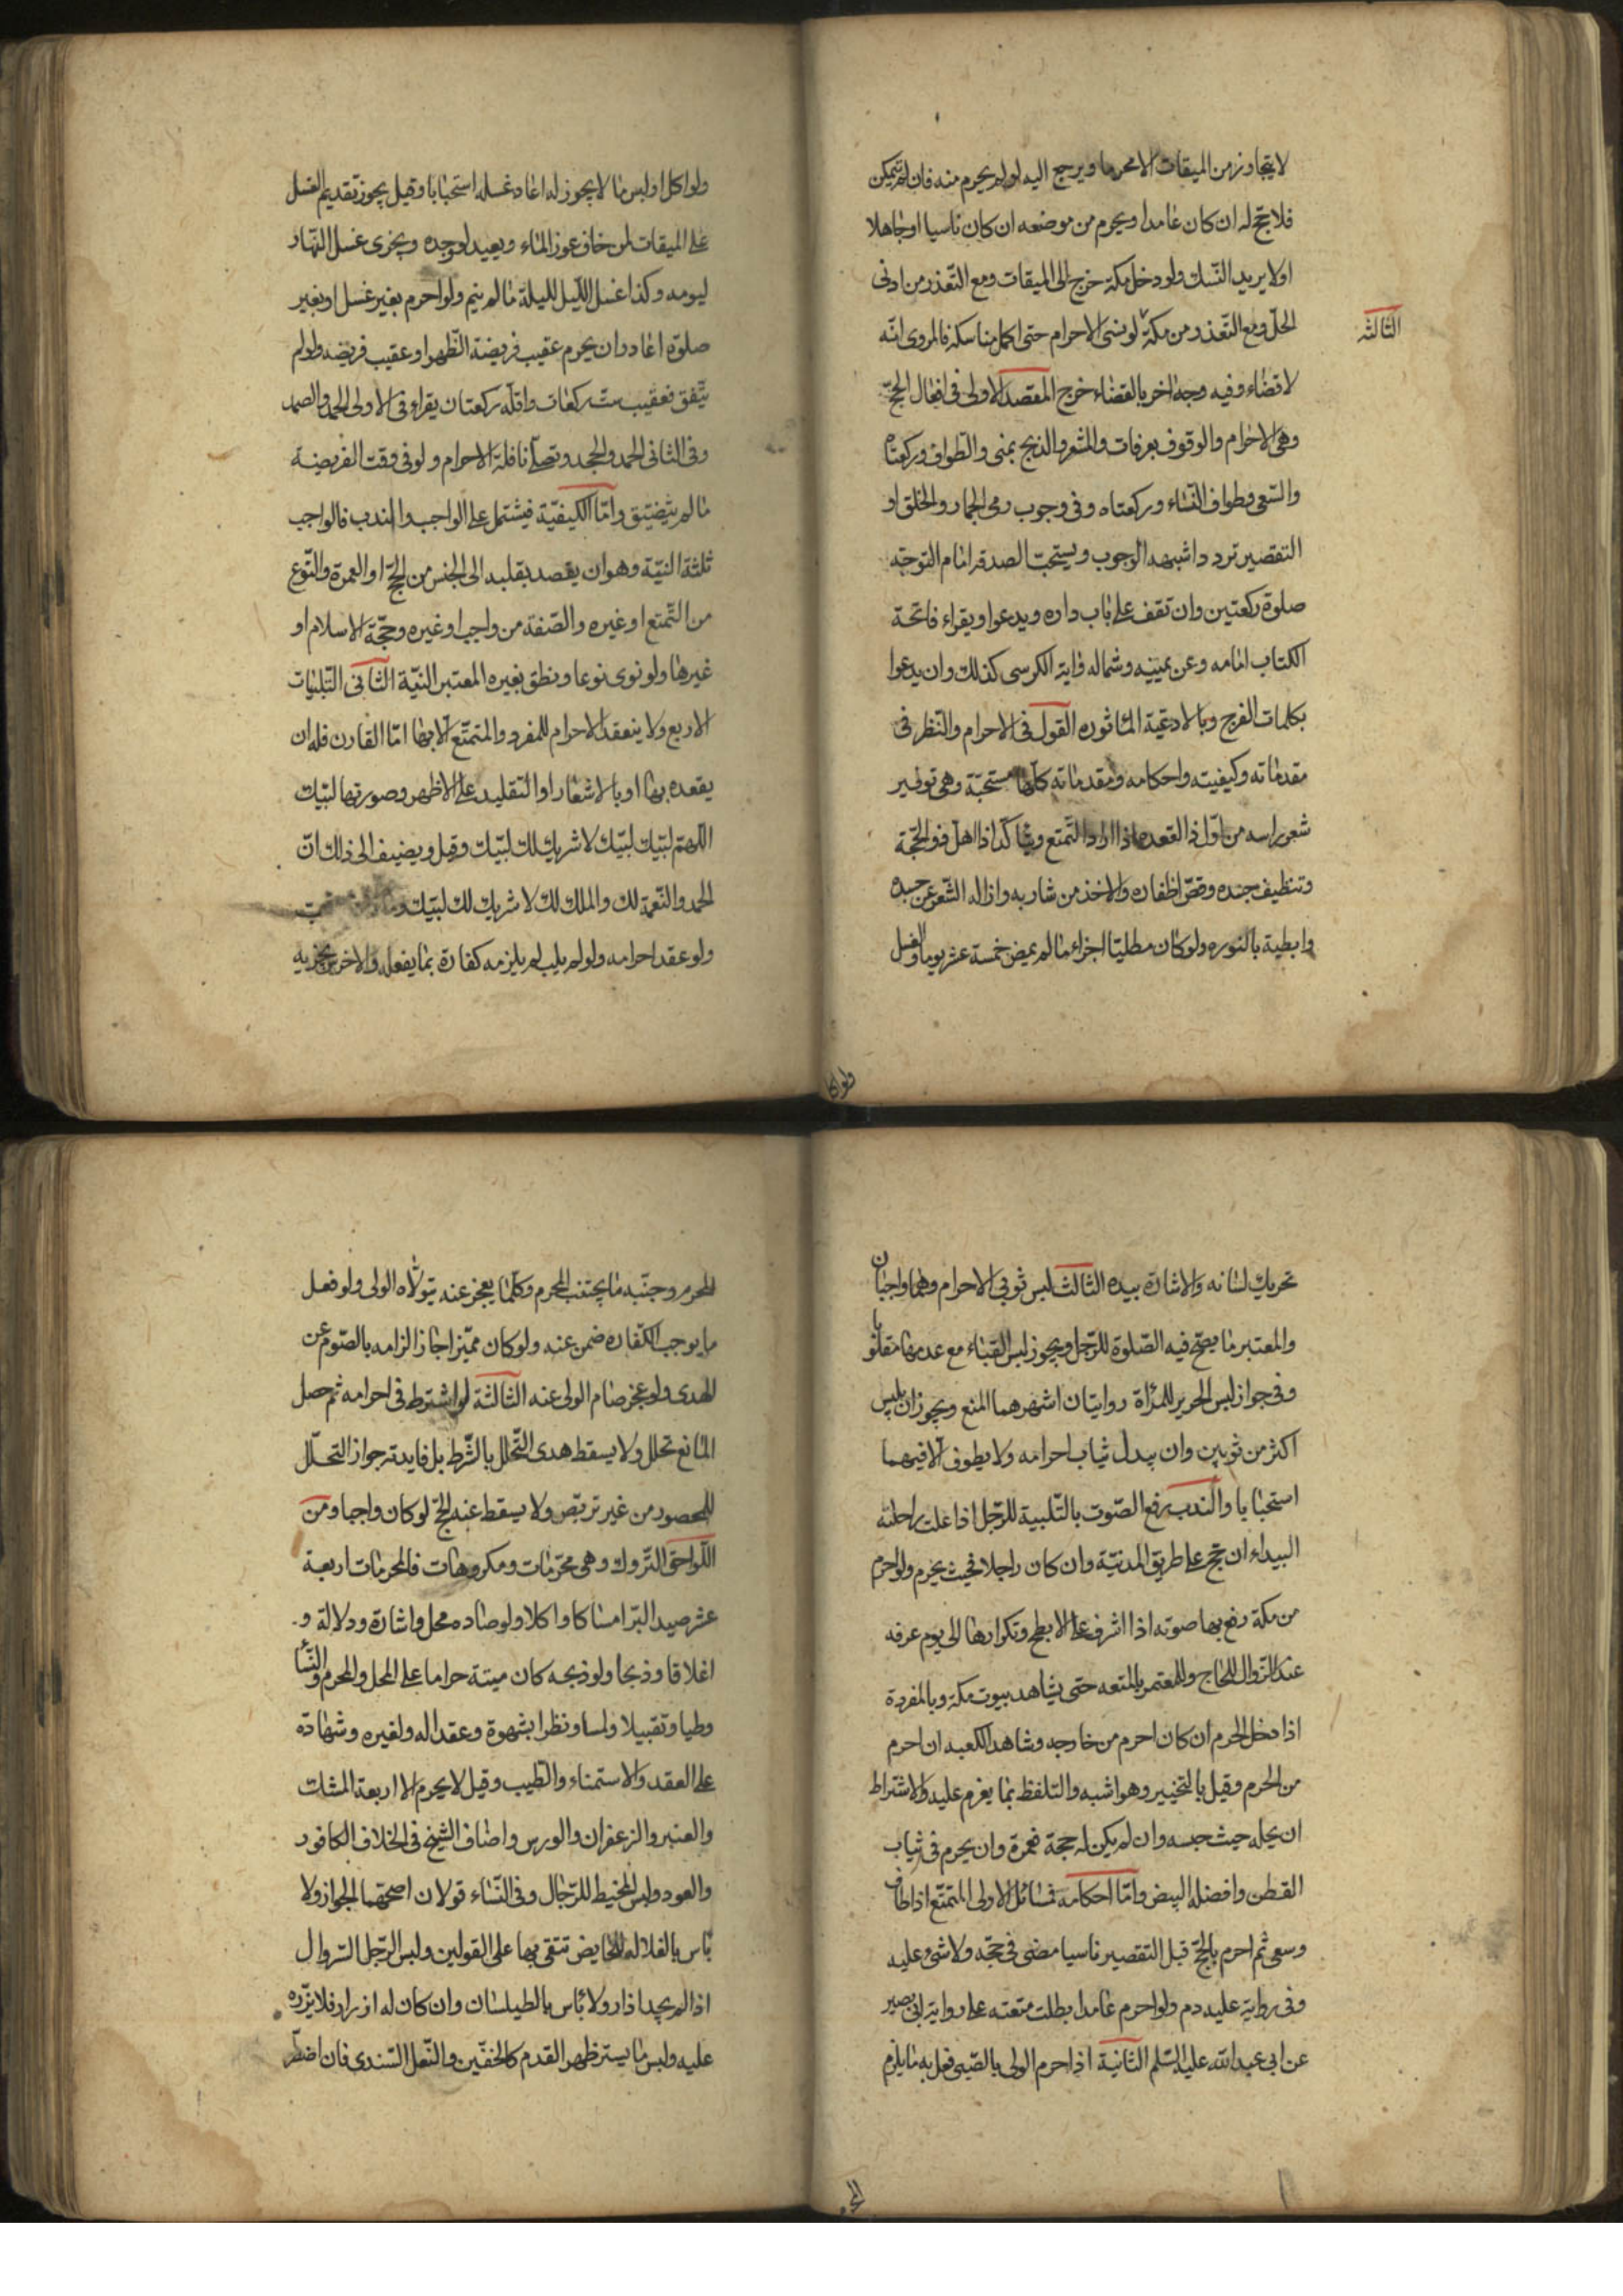 لا يتجاوز من الميقات الا محرما ويرجع اليه لو لم يحرم منه فان لم يتمكن
فلا حج له ان كان عامدا ويحرم من موضعه ان كان ناسيا او جاهلا
او لا يريد النسك ولو دخل مكة خرج الى الميقات ومع التعذر من ادنى
الحل ومع التعذر ومن مكة لو نسى الاحرام حتى اكمل مناسكه فالمروى انه
الثالثة
لا قضاء وفيه وجه اخر بالقضاء خرج المقصد الاولى فى افعال الحج
وهى الاحرام والوقوف بعرفات والمشعر والذبح بمنى والطواف وركعتاه
والسعى وطواف النساء وركعتاه وفى وجوب رمى الجمار والحلق او
التقصير تردد اشبهه الوجوب ويستحب الصدقه امام التوجه
صلوة ركعتين وان تقف على باب داره ويدعوا ويقراء فاتحة
الكتاب امامه وعن يمينه وشماله واية الكرسى كذلك وان يدعوا
بكلمات الفرج وبالادعية الماثوره القول فى الاحرام والنظر فى
مقدماته وكيفيته واحكامه ومقدماته كلها مستحبة وهى توفير
شعر راسه من اول ذا القعده اذا اراد التمتع ويتاكد اذا اهل ذو الحجة
وتنظيف جسده وقص اظفاره والاخذ من شاربه وازاله الشعر عن جسده
وابطيه بالنوره ولو كان مطليا اجزاء ما لم يمض خمسة عشر يوما والغسل
ولو اكل
ولو اكل او لبس ما لا يجوز له اعاد غسله استحبابا وقيل يجوز تقديم الغسل
على الميقات لمن خاف عوز الماء ويعيد لو وجده ويجزى غسل النهار
ليومه وكذا غسل الليل لليلة ما لم ينم ولو احرم بغير غسل او بغير
صلوة اعاد وان يحرم عقيب فريضة الظهر او عقيب فريضه ولو لم
يتفق فعقيب ست ركعات واقله ركعتان يقراء فى الاولى الحمد والصمد
وفى الثانى الحمد والجحد وتصلى نافلة الاحرام ولو فى وقت الفريضة
ما لم يتضيق واما الكيفية فيشتمل على الواجب والندب فالواجب
ثلثة النية وهو ان يقصد بقلبه الى الجنس من الحج او العمرة والنوع
من التمتع او غيره والصفة من واجب او غيره وحجة الاسلام او
غيرها ولو نوى نوعا ونطق بغيره المعتبر النية الثانى التلبيات
الاربع ولا ينعقد الاحرام للمفرد والمتمتع الا بها اما القارن فله ان
يقعده بها او بالاشعار او التقليد على الاظهر وصورتها لبيك
اللهم لبيك لبيك لا شريك لك لبيك وقيل ويضيف الى ذلك ان
الحمد والنعمة لك والملك لك لا شريك لك لبيك
ولو عقد احرامه ولو لم يلب لم يلزمه كفارة بما يفعله والاخرس يجزيه
تحريك لسانه والاشارة بيده الثالث لبس ثوبى الاحرام وهما واجبان
والمعتبر ما يصح فيه الصلوة للرجل ويجوز لبس القباء مع عدمها مقلوبا
وفى جواز لبس الحرير للمرأة روايتان اشهرهما المنع ويجوز ان يلبس
اكثر من ثوبين وان يبدل ثياب احرامه ولا يطوف الا فيهما
استحبابا والندب رفع الصوت بالتلبية للرجل اذا علت راحلته
البيداء ان حج على طريق المدنية وان كان راجلا فحيث يحرم ولو احرم
من مكة رفع بها صوته اذا اشرف على الابطح وتكرارها الى يوم عرفه
عند الزوال للحاج وللمعتمر بالمتعه حتى يشاهد بيوت مكة وبالمفردة
اذا دخل الحرم ان كان احرم من خارجه وشاهد الكعبه ان احرم
من الحرم وقيل بالتخيير وهو اشبه والتلفظ بما يغرم عليه والاشتراط
ان يحله حيث حبسه وان لم يكن له حجة فعمرة وان يحرم فى ثياب
القطن وافضله البيض واما احكامه فمسائل الاولى المتمتع اذا طاف
وسعى ثم احرم بالحج قبل التقصير ناسيا مضى فى حجه ولا شىء عليه
وفى رواية عليه دم ولو احرم عامدا بطلت متعته على رواية ابى بصير
عن ابى عبد الله عليه السلم الثانية اذا احرم الولى بالصبى فعل به ما يلزم
المحرم
المحرم وجنبه ما يجتنب المحرم وكلما يعجز عنه يتولاه الولى ولو فعل
ما يوجب الكفاره ضمن عنه ولو كان مميزا جاز الزامه بالصوم عن
الهدى ولو عجز صام الولى عنه الثالثة لو اشترط فى احرامه ثم حصل
المانع تحلل ولا يسقط هدى التحلل بالشرط بل فايدته جواز التحلل
للمحصور من غير تربص ولا يسقط عنه الحج لو كان واجبا ومن
اللواحق التروك وهى محرمات ومكروهات فالمحرمات اربعة
عشر صيد البر امساكا واكلا ولو صاده محل واشارة ودلالة و
اغلاقا وذبحا ولو ذبحه كان ميتة حراما على المحل والمحرم والنسا
وطيا وتقبيلا ولمسا ونظرا بشهوة وعقدا له ولغيره وشهادة
على العقد والاستمناء والطيب وقيل لا يحرم الا اربعة المسك
والعنبر والزعفران والورس واضاف الشيخ فى الخلاف الكافور
والعود ولبس المخيط للرجال وفى النساء قولان اصحهما الجواز ولا
باس بالغلاله للحايض تتقى بها على القولين ولبس الرجل السروال
اذا لم يجد ازار ولا باس بالطيلسان وان كان له ازرار فلا يزره
عليه ولبس ما يستر ظهر القدم كالخفين والنعل السندى فان اضطر